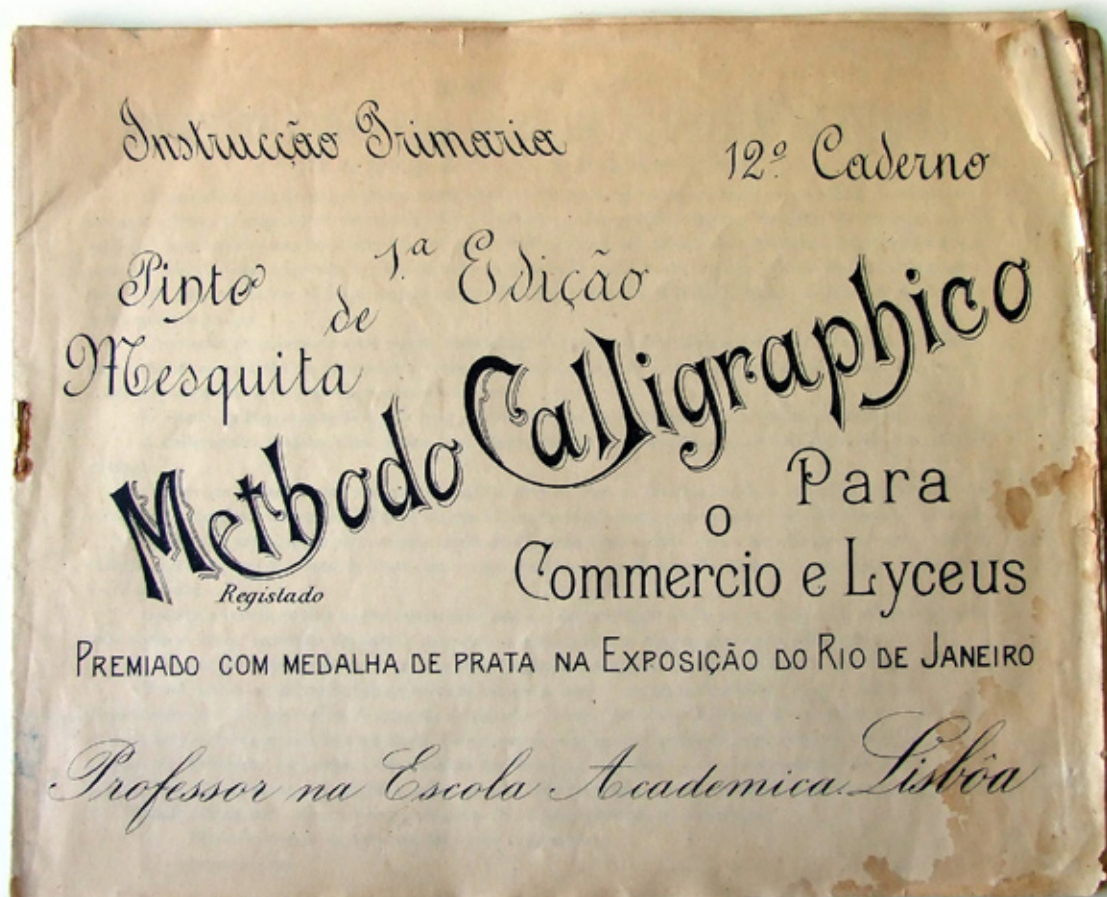 Instrucção Primaria
12º Caderno
1.ª Edição
Pinto
de
Mesquita
Methodo Calligraphico
Registado
Para
o
Commercio e Lyceus
PREMIADO COM MEDALHA DE PRATA NA EXPOSIÇÃO DO RIO DE JANEIRO
Professor na Escola Academica. Lisbôa